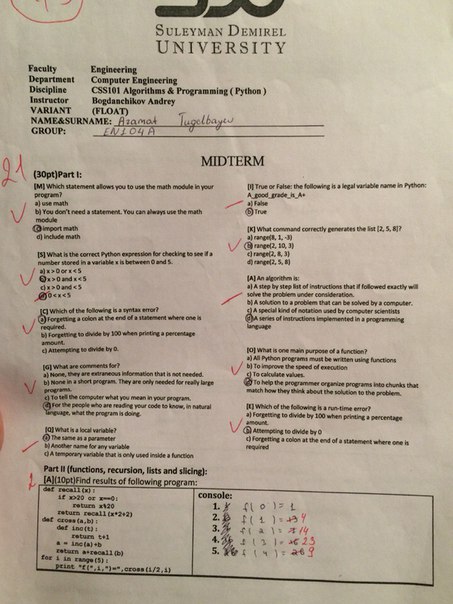 SULEYMAN DEMIREL
UNIVERSITY
Faculty Engineering
Department Computer Engineering
Discipline CSS101 Algorithms & Programming ( Python )
Instructor Bogdanchikov Andrey
VARIANT (FLOAT)
NAME&SURNAME: Azamat Tugelbayev
GROUP: EN104A
MIDTERM
21
(30pt)Part I:
[M] Which statement allows you to use the math module in your
program?
a) use math
b) You don't need a statement. You can always use the math
module
c) import math
d) include math
[S] What is the correct Python expression for checking to see if a
number stored in a variable x is between 0 and 5.
a) x > 0 or x < 5
b) x > 0 and x < 5
c) x > 0 and < 5
d) 0 < x < 5
[C] Which of the following is a syntax error?
a) Forgetting a colon at the end of a statement where one is
required.
b) Forgetting to divide by 100 when printing a percentage
amount.
c) Attempting to divide by 0.
[G] What are comments for?
a) None, they are extraneous information that is not needed.
b) None in a short program. They are only needed for really large
programs.
c) To tell the computer what you mean in your program.
d) For the people who are reading your code to know, in natural
language, what the program is doing.
[Q] What is a local variable?
a) The same as a parameter
b) Another name for any variable
c) A temporary variable that is only used inside a function
[I] True or False: the following is a legal variable name in Python:
A_good_grade_is_A+
a) False
b) True
[K] What command correctly generates the list [2, 5, 8]?
a) range(8, 1, -3)
b) range(2, 10, 3)
c) range(2, 8, 3)
d) range(2, 5, 8)
[A] An algorithm is:
a) A step by step list of instructions that if followed exactly will
solve the problem under consideration.
b) A solution to a problem that can be solved by a computer.
c) A special kind of notation used by computer scientists
d) A series of instructions implemented in a programming
language
[O] What is one main purpose of a function?
a) All Python programs must be written using functions
b) To improve the speed of execution
c) To calculate values.
d) To help the programmer organize programs into chunks that
match how they think about the solution to the problem.
[E] Which of the following is a run-time error?
a) Forgetting to divide by 100 when printing a percentage
amount.
b) Attempting to divide by 0
c) Forgetting a colon at the end of a statement where one is
required
Part II (functions, recursion, lists and slicing):
[A](10pt)Find results of following program:
def recall(x):
if x>20 or x==0:
return x%20
return recall(x*2+2)
def cross(a,b):
def inc(t):
return t+1
a = inc(a)+b
return a+recall(b)
for i in range(5):
print "f(",i,")=",cross(i/2,i)
console:
1. f(0)=1
2. f(1)= 4
3. f(2)= 14
4. f(3)= 23
5. f(4)= 9